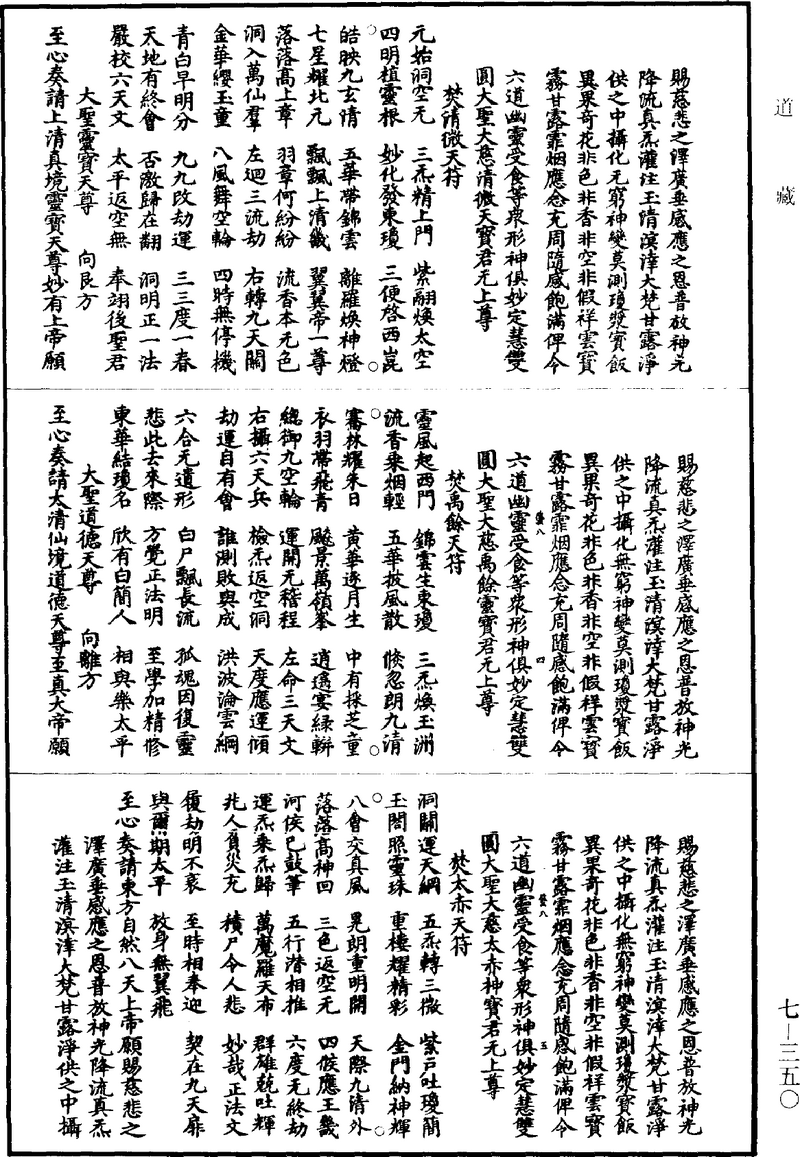 道藏
賜慈悲之澤廣垂感應之恩普放神光
降流真炁灌注玉清溟涬大梵甘露淨
供之中攝化无窮神變莫測瓊漿寶飯
異果奇花非色非香非空非假祥雲寶
霧甘露霏烟應念充周隨感飽滿俾令
六道幽靈受食等衆形神俱妙定慧雙
圓大聖大慈清微天寶君无上尊
焚清微天符
元始洞空元　三炁精上門　紫翮煥太空
四明植靈根　妙化發東瓊　三便啓西崑
皓映九玄清　五華帶錦雲　離羅煥神燈
七星耀北元　飄飄上清畿　翼翼帝一尊
落落高上章　羽章何紛紛　流香本无色
洞入萬仙羣　左迴三流劫　右轉九天關
金華纓玉童　八風舞空輪　四時無停機
青白早明分　九九改劫運　三三度一春
天地有終會　否激歸在翻　洞明正一法
嚴校六天文　太平返空無　奉翊後聖君
大聖靈寶天尊　向艮方
至心奏請上清真境靈寶天尊妙有上帝願
賜慈悲之澤廣垂感應之恩普放神光
降流真炁灌注玉清溟涬大梵甘露淨
供之中攝化無窮神變莫測瓊漿寶飯
異果奇花非色非香非空非假祥雲寶
霧甘露霏烟應念充周隨感飽滿俾令
六道幽靈受食等衆形神俱妙定慧雙
圓大聖大慈禹餘靈寶君无上尊
焚禹餘天符
靈風起西門　錦雲生東瓊　三炁煥玉洲
流香乘烟輕　五華披風散　倏忽朗九清
騫林耀朱日　黃華逐月生　中有採芝童
衣羽帶飛青　飈景萬嶺峯　逍遙宴綠軿
總御九空輪　運開元稽程　左命三天文
右攝六天兵　檢炁返空洞　天度應運傾
劫運自有會　誰測敗與成　洪波淪雲綱
六合无遺形　白尸飄長流　孤魂因復靈
悲此去來際　方覺正法明　至學加精修
東華結瓊名　欣有白簡人　相與樂太平
大聖道德天尊　向離方
至心奏請太清仙境道德天尊至真大帝願
賜慈悲之澤廣垂感應之恩普放神光
降流真炁灌注玉清溟涬大梵甘露淨
供之中攝化無窮神變莫測瓊漿寶飯
異果奇花非色非香非空非假祥雲寶
霧甘露霏烟應念充周隨感飽滿俾令
六道幽靈受食等衆形神俱妙定慧雙
圓大聖大慈太赤神寶君无上尊
焚太赤天符
洞關運天綱　五炁轉三微　紫戶吐瓊簡
玉閣照靈珠　重樓耀精彩　金門納神輝
八會交真風　晃朗重明開　天際九清外
落落高神回　三色返空无　四候應王畿
河侯已鼓筆　五行潛相推　六度无終劫
運炁乘炁歸　萬魔羅天布　群雄競吐輝
兆人負災充　積尸令人悲　妙哉正法文
履劫明不衰　至時相奉迎　契在九天扉
與爾期太平　放身無翼飛
至心奏請東方自然八天上帝願賜慈悲之
澤廣垂感應之恩普放神光降流真炁
灌注玉清溟涬大梵甘露淨供之中攝
七—三五〇